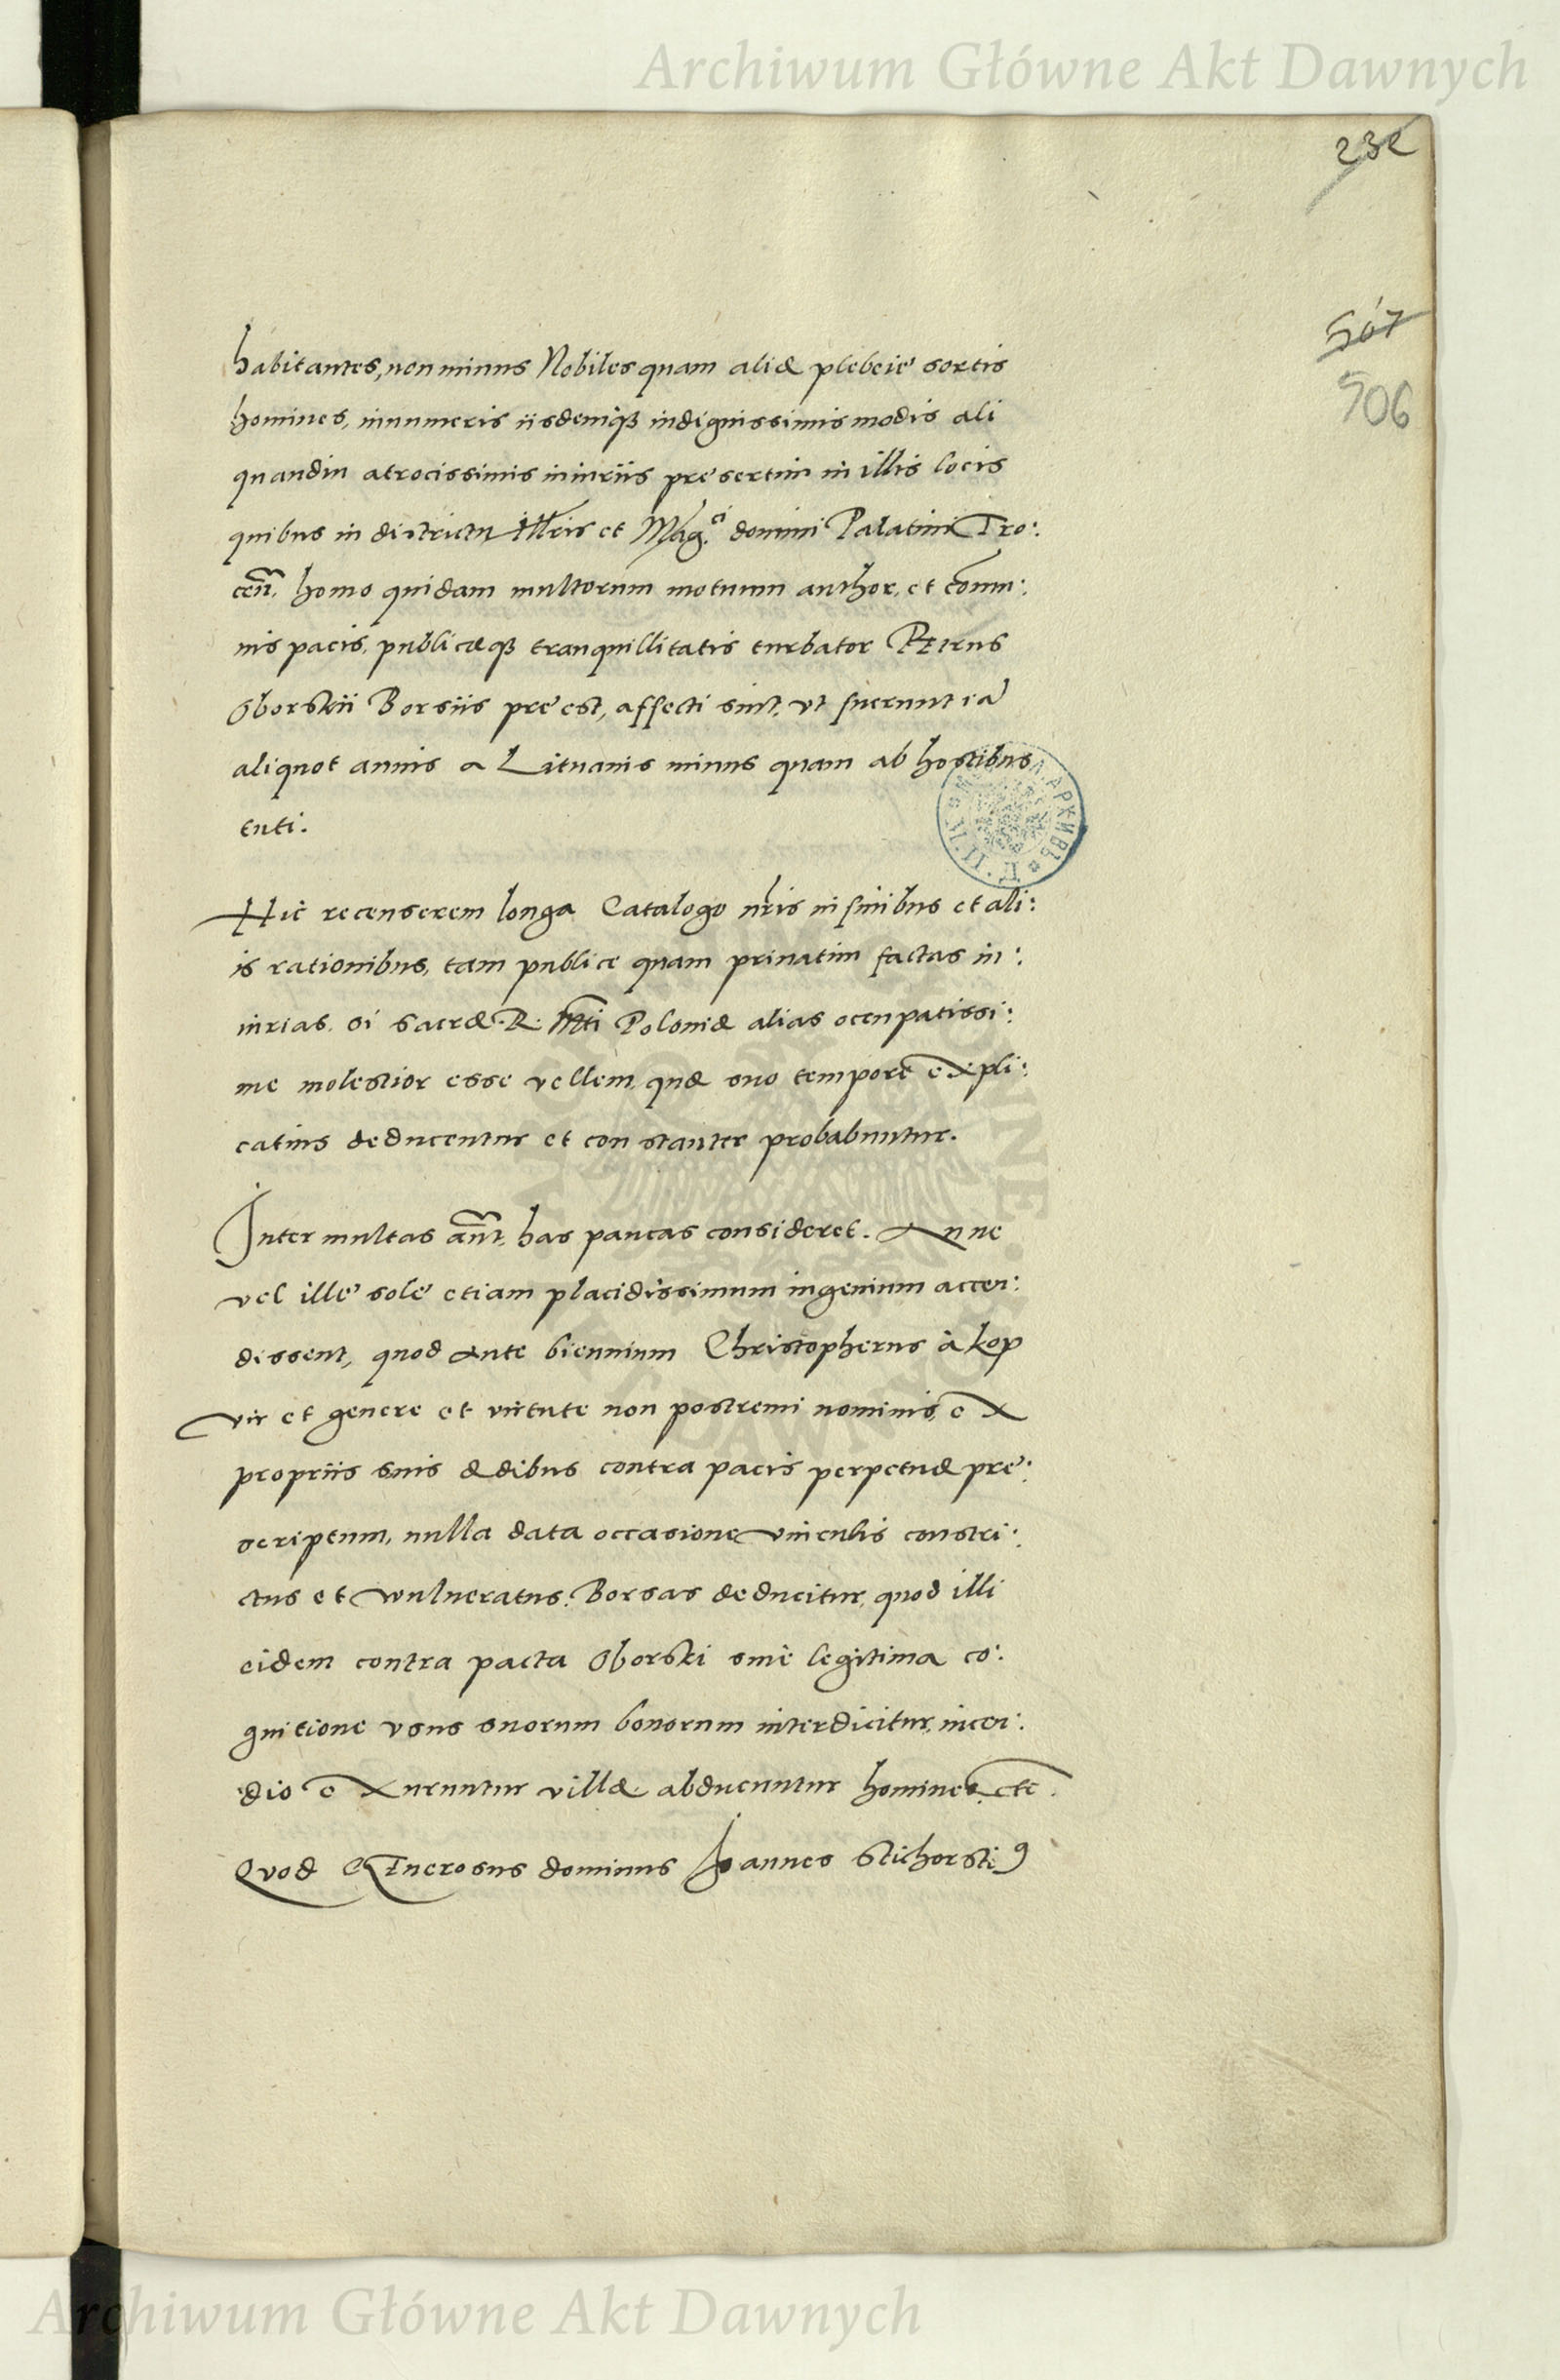 Archiwum Główne Akt Dawnych
232
507
506
habitantes, non minus Nobiles quam aliæ plebeie sortis
homines, innumeris iisdemq3 indignissimis modis ali
quandiu atrocissimis iniuriis presertim in illis locis
quibus in districtu Illris et Mag.ci domini Palatini Tro:
cen̄. homo quidam multorum motuum author, et comu:
nis pacis, publicæq3 tranquillitatis turbator Petrus
Oborskii Borsiis preest, affecti sint, vt fuerunt iā
aliquot annis a Lituanis minus quam ab hostibus
tuti.
Hic recenserem longa Catalogo nr̄is in finibus et ali:
is rationibus, tam publice quam priuatim factas in:
iurias. si sacræ. R. Mti Poloniæ alias occupatissi:
me molestior esse vellem, quæ suo tempore expli:
catius deducentur et constanter probabuntur.
Inter multas aūt, has paucas consideret. An ne
vel ille sole etiam placidissimum ingenium accen:
dissent, quod ante biennium Christopherus à Kop
vir et genere et virtute non postremi nominis, ex
propriis suis ædibus contra pacis perpetuæ pre:
scriptum, nulla data occasione vinculis constri:
ctus et wulneratus. Borsas deducitur, quod illi
eidem contra pacta Oborski sine legitima co:
gnitione vsus suorum bonorum interdicitur, incen:
dio exuruntur villæ. abducuntur homines etc.
Quod Generosus dominus Joannes Stichorski9
Archiwum Główne Akt Dawnych